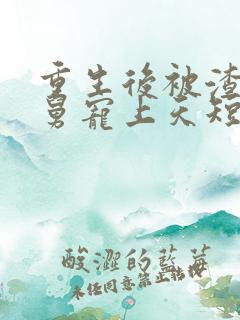 重生後被渣
舅寵上天短
酸澀的藍莓
未任同意禁止轉發